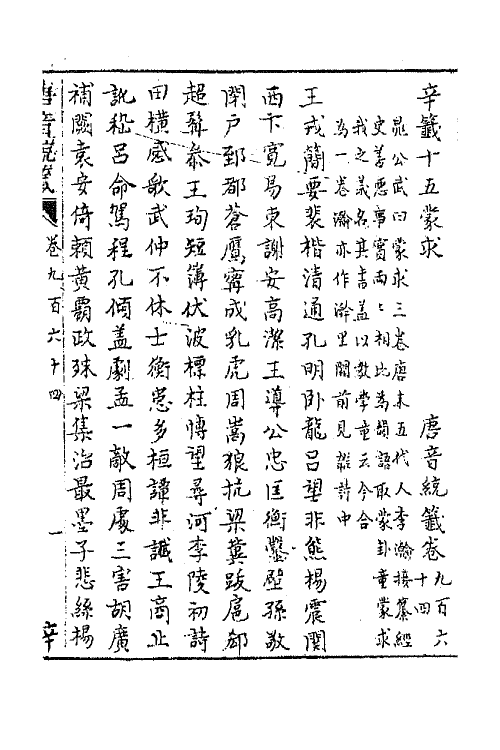 辛籤十五蒙求　唐音統籤卷九百六十四
晁公武曰蒙求三卷唐末五代人李瀚撰纂經
史善惡事實兩兩相比為韻語取蒙卦童蒙求
我之義名其書盖以教學童云今合
為一卷瀚亦作澣里閥前見雜詩中
王戎簡要裴楷清通孔明卧龍吕望非熊楊震關
西丁寛易東謝安高潔王導公忠匡衡鑿壁孫敬
閉户郅都蒼鷹甯成乳虎周嵩狼抗梁冀跋扈郗
超髯參王珣短簿伏波標柱博望尋河李陵初詩
田横感歌武仲不休士衡患多桓譚非讖王商止
訛嵇吕命駕程孔傾盖劇孟一敵周處三害胡廣
補闕袁安倚賴黄霸政殊梁集治最墨子悲絲楊
唐音統籤　卷九百六十四　一　辛